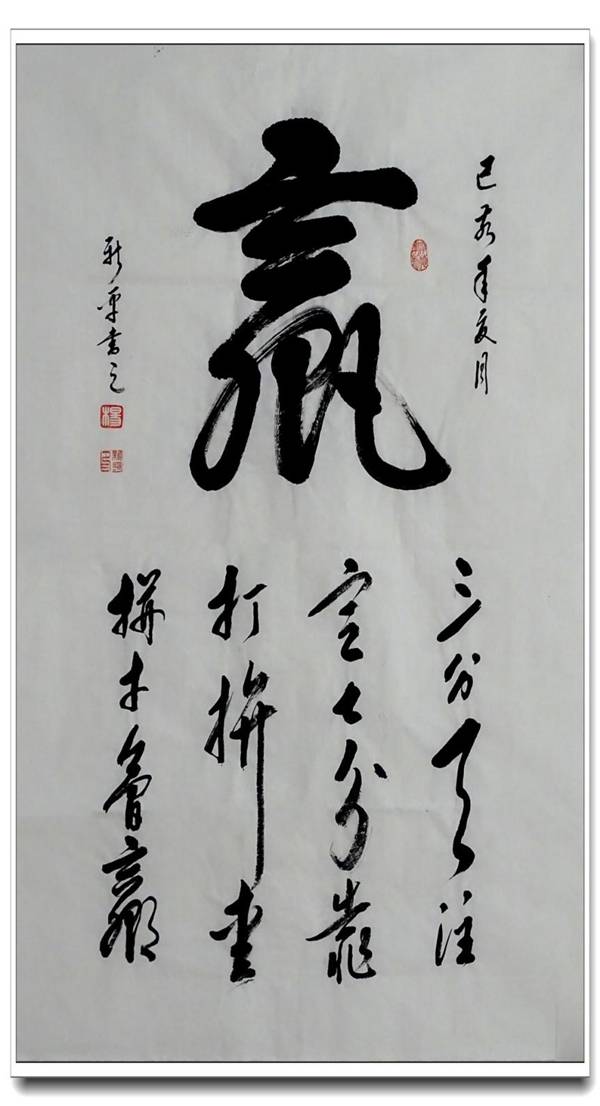 己亥年夏月
赢
三分天注
定七分靠
打拼爱
拼才會赢
新平書之
楊